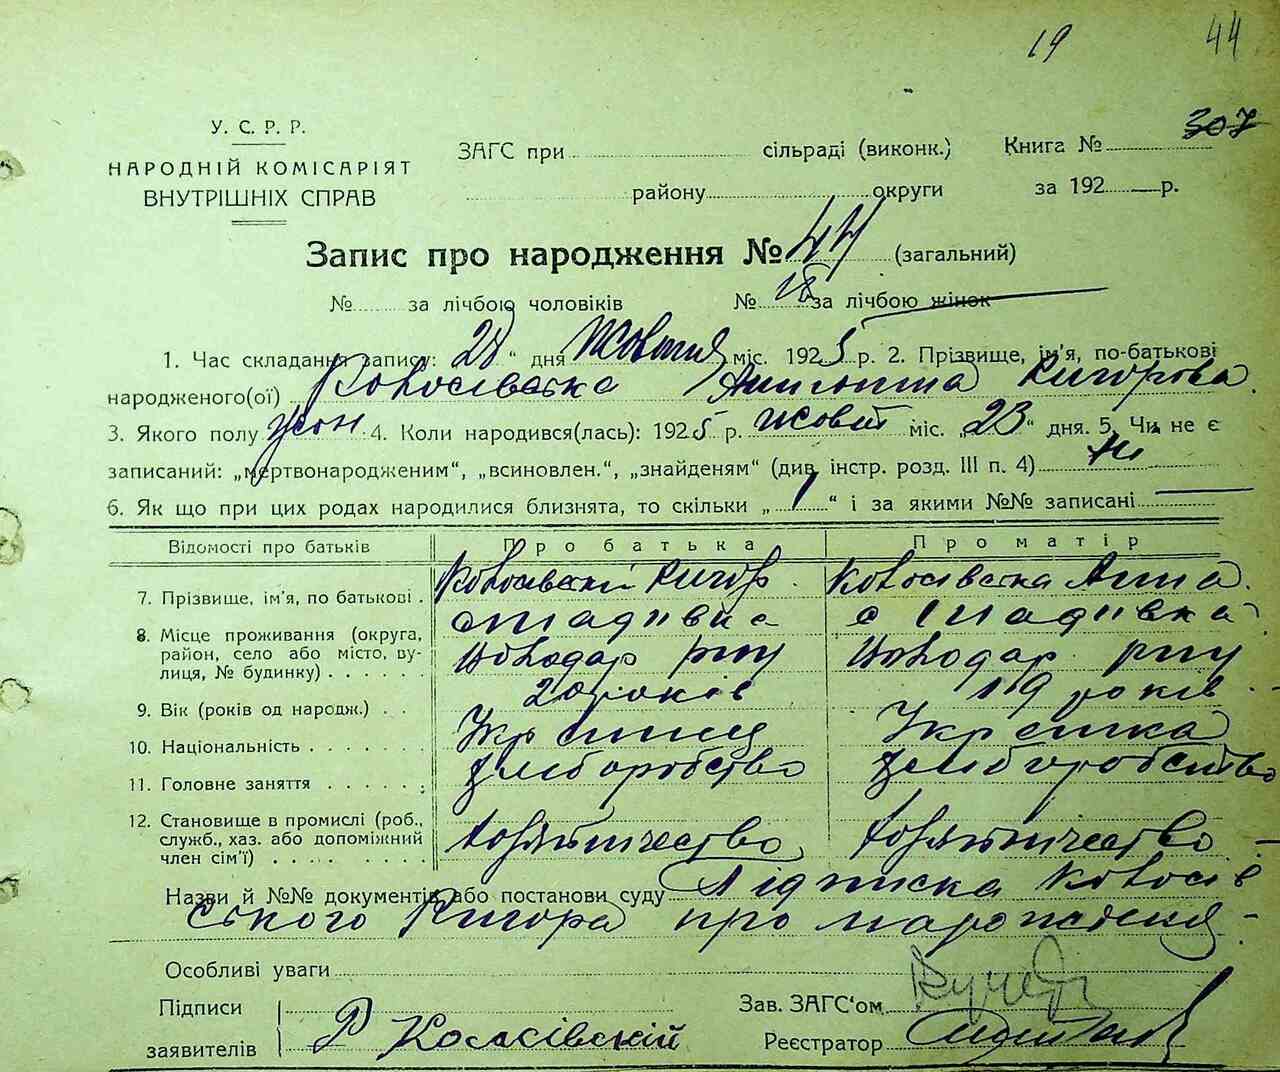 19 44
У. С. Р. Р.
НАРОДНІЙ КОМІСАРІЯТ
ВНУТРІШНІХ СПРАВ
ЗАГС при сільраді (виконк.) Книга № 307
району округи за 192 р.
Запис про народження № 44 (загальний)
№ за лічбою чоловіків № 18 за лічбою жінок
1. Час складання запису: 28 " дня Жовтня міс. 1925 р. 2. Прізвище, ім'я, по-батькові
народженого(ої) Колосівська Ригорова
3. Якого полу жін 4. Коли народився(лась): 1925 р. Жовт міс. „23" дня. 5. Чи не є
записаний: „мертвонародженим", „всиновлен.", „знайденям" (див. інстр. розд. III п. 4) Ні
6. Як що при цих родах народилися близнята, то скільки „ " і за якими №№ записані
Відомості про батьків Про батька Про матір
7. Прізвище, ім'я, по батькові . Колосівскій Ригор. Колосівска Анна.
8. Місце проживання (округа, с Стадівка
район, село або місто, ву- Володар рну Володар рну
лиця, № будинку) . . . . .
9. Вік (років од народж.) . . 20 років 19 років
10. Національність . . . . . . . Укр Укр
11. Головне заняття . . . . . ; хлиборобство хлиборобство
12. Становище в промислі (роб.,
служб., хаз. або допоміжний
член сім'ї) . . . . . . . .
Назви й №№ документів або постанови суду Підписка Колосів
ського Ригора про народженя
Особливі уваги
Підписи Зав. ЗАГС'ом
заявителів Р Колосівскій Реєстратор